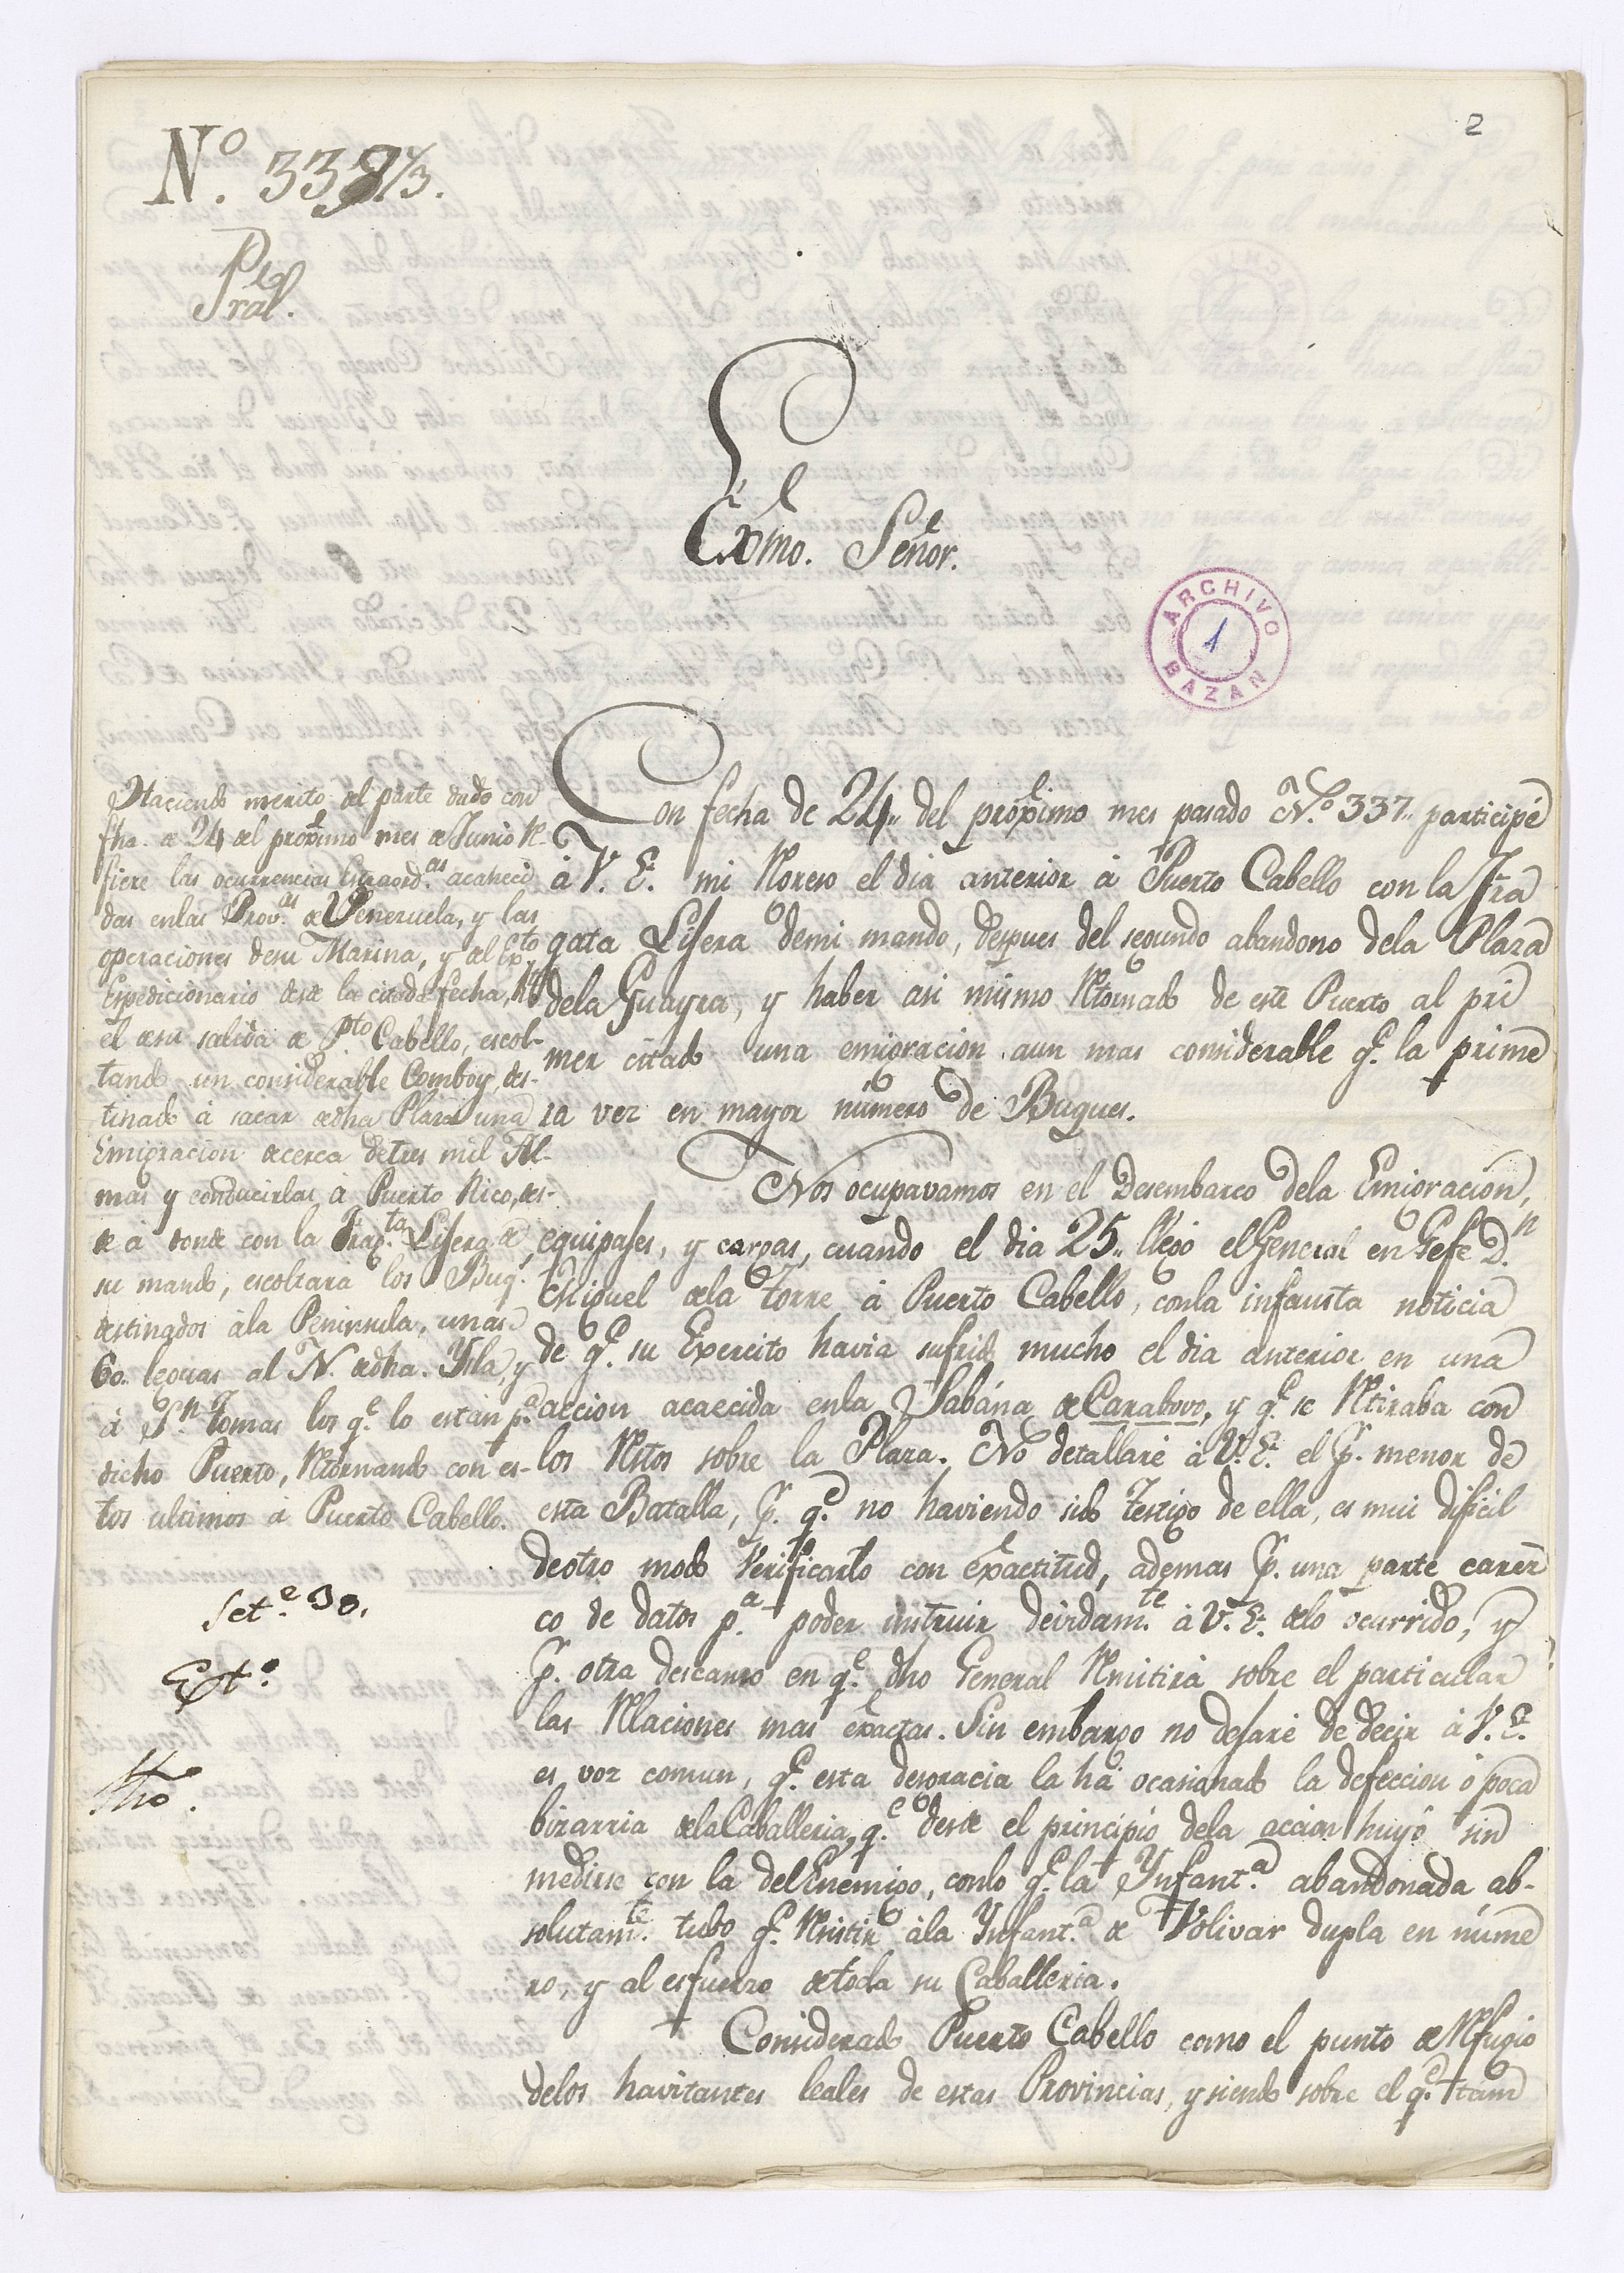 2
Nº. 338 1/3.
Pral.
Exmo. Señor.
ARCHIVO
1
BAZAN
Haciendo merito del parte dado con
fha. de 24 del próximo mes de Junio Re-
fiere las ocurrencias Extraord.as acaheci
das enlas Prov.as de Venezuela, y las
operaciones desu Marina, y del Exto.
Expedicionario desde la citada fecha, hta
el desu salida de Pto. Cabello, escol-
tando un considerable Comboy, des-
tinado á sacar dedha Plaza una
Emigracion decerca detres mil Al-
mas y conducirlas á Puerto Rico, des-
de á donde con la Frag.ta Lijera de
su mando, escoltará los Buq.s
destinados ála Peninsula, unas
60.. leguas al N. dedha. Ysla, y
á Sn. Tomas los q.e lo estan p.a
dicho Puerto, Retornando con es-
tos ultimos á Puerto Cabello.
Set.e 30.
Ext.o
fho.
Con fecha de 24.. del próximo mes pasado N.o 337.. participé
á V. E. mi Regreso el dia anterior á Puerto Cabello con la Fra
gata Lijera demi mando, despues del segundo abandono dela Plaza
dela Guayra, y haber asi mismo Retornado de este Puerto al pri
mer citado una emigracion aun mas considerable q.e la prime
ra vez en mayor número de Buques.
Nos ocupavamos en el Desembarco dela Emigracion,
equipajes, y cargas, cuando el dia 25.. llegó el General en Gefe D.n
Miguel dela Torre á Puerto Cabello, conla infausta noticia
de q.e su Exercito havia sufrido mucho el dia anterior en una
accion acaecida enla Sabána de Carabovo, y q.e se Retiraba con
los Restos sobre la Plaza. No detallaré á V. E. el p.r menor de
esta Batalla, p.r q.e no haviendo sido Testigo de ella, es mui dificil
deotro modo Verificarlo con éxactitud, ademas p.r una parte carez
co de datos p.a poder instruir devidam.te á V. E. delo ocurrido, y
p.r otra descanso en q.e dho General Remitirá sobre el particular
las Relaciones mas éxactas. Sin embargo no dejaré de decir á V. E.
es voz comun, q.e esta desgracia la há ocasionado la defeccion ó poca
bizarria dela Caballeria, q.e desde el principio dela accion huyó sin
medirse con la del Enemigo, conlo q.e la Ynfant.a abandonada ab-
solutam.te tubo q.e Resistir ála Ynfant.a de Volivar dupla en núme
ro, y al esfuerzo detoda su Caballeria.
Considerado Puerto Cabello como el punto de Refugio
delos havitantes leales de estas Provincias, y siendo sobre el q.e tam